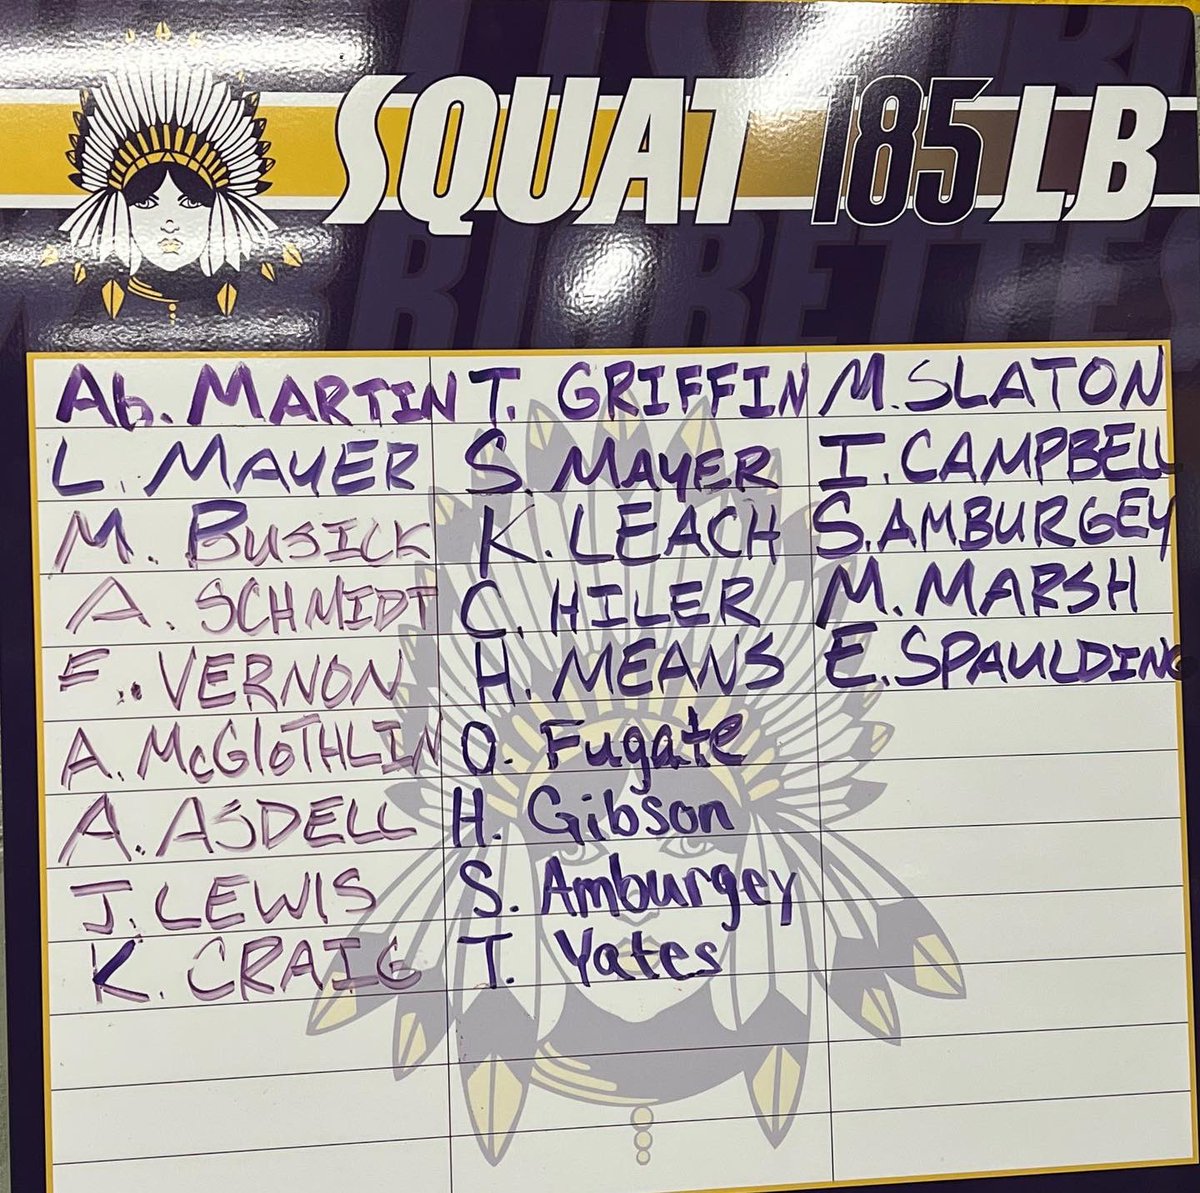 SQUAT 185 LB
Ab. MARTIN
L. MAYER
M. BUSICK
A. SCHMIDT
E. VERNON
A. McGloTHLIN
A. ASDELL
J. LEWIS
K. CRAIG
T. GRIFFIN
S. MAYER
K. LEACH
C. HILER
H. MEANS
O. Fugate
H. Gibson
S. Amburgey
T. Yates
M. SLATON
I. CAMPBELL
S. AMBURGEY
M. MARSH
E. SPAULDING